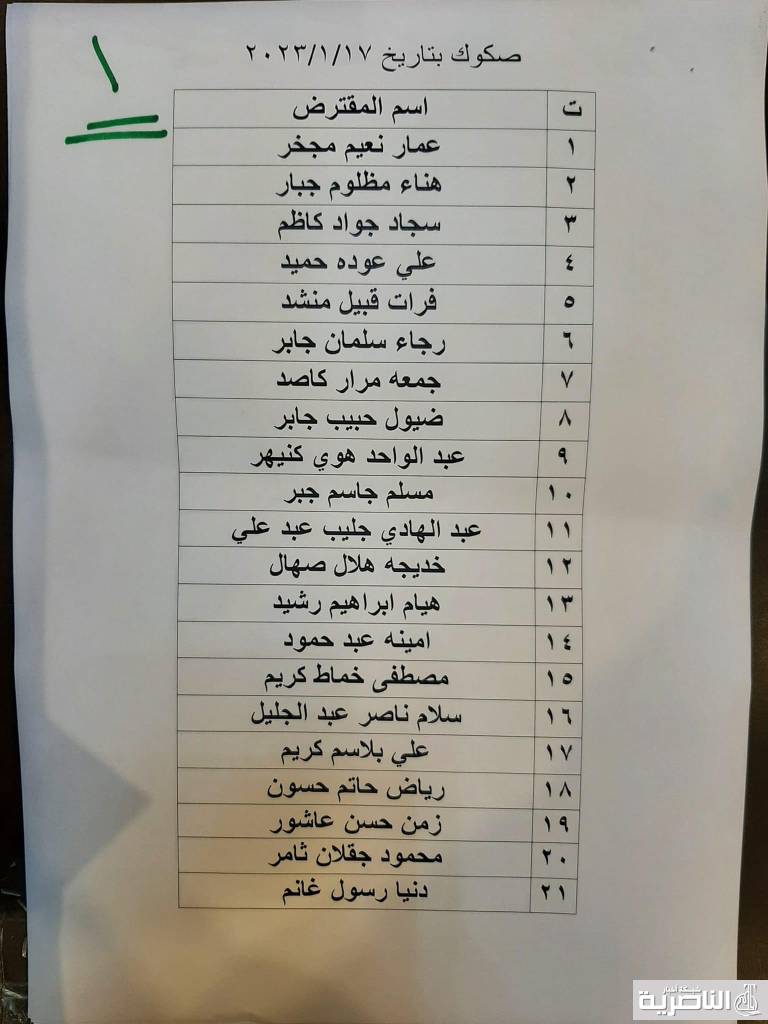 ١
صكوك بتاريخ ٢٠٢٣/١/١٧
ت اسم المقترض
١ عمار نعيم مجخر
٢ هناء مظلوم جبار
٣ سجاد جواد كاظم
٤ علي عوده حميد
٥ فرات قبيل منشد
٦ رجاء سلمان جابر
٧ جمعه مرار كاصد
٨ ضيول حبيب جابر
٩ عبد الواحد هوي كنيهر
١٠ مسلم جاسم جبر
١١ عبد الهادي جليب عبد علي
١٢ خديجه هلال صهال
١٣ هيام ابراهيم رشيد
١٤ امينه عبد حمود
١٥ مصطفى خماط كريم
١٦ سلام ناصر عبد الجليل
١٧ علي بلاسم كريم
١٨ رياض حاتم حسون
١٩ زمن حسن عاشور
٢٠ محمود جقلان ثامر
٢١ دنيا رسول غانم
شبكة أخبار
الناصرية